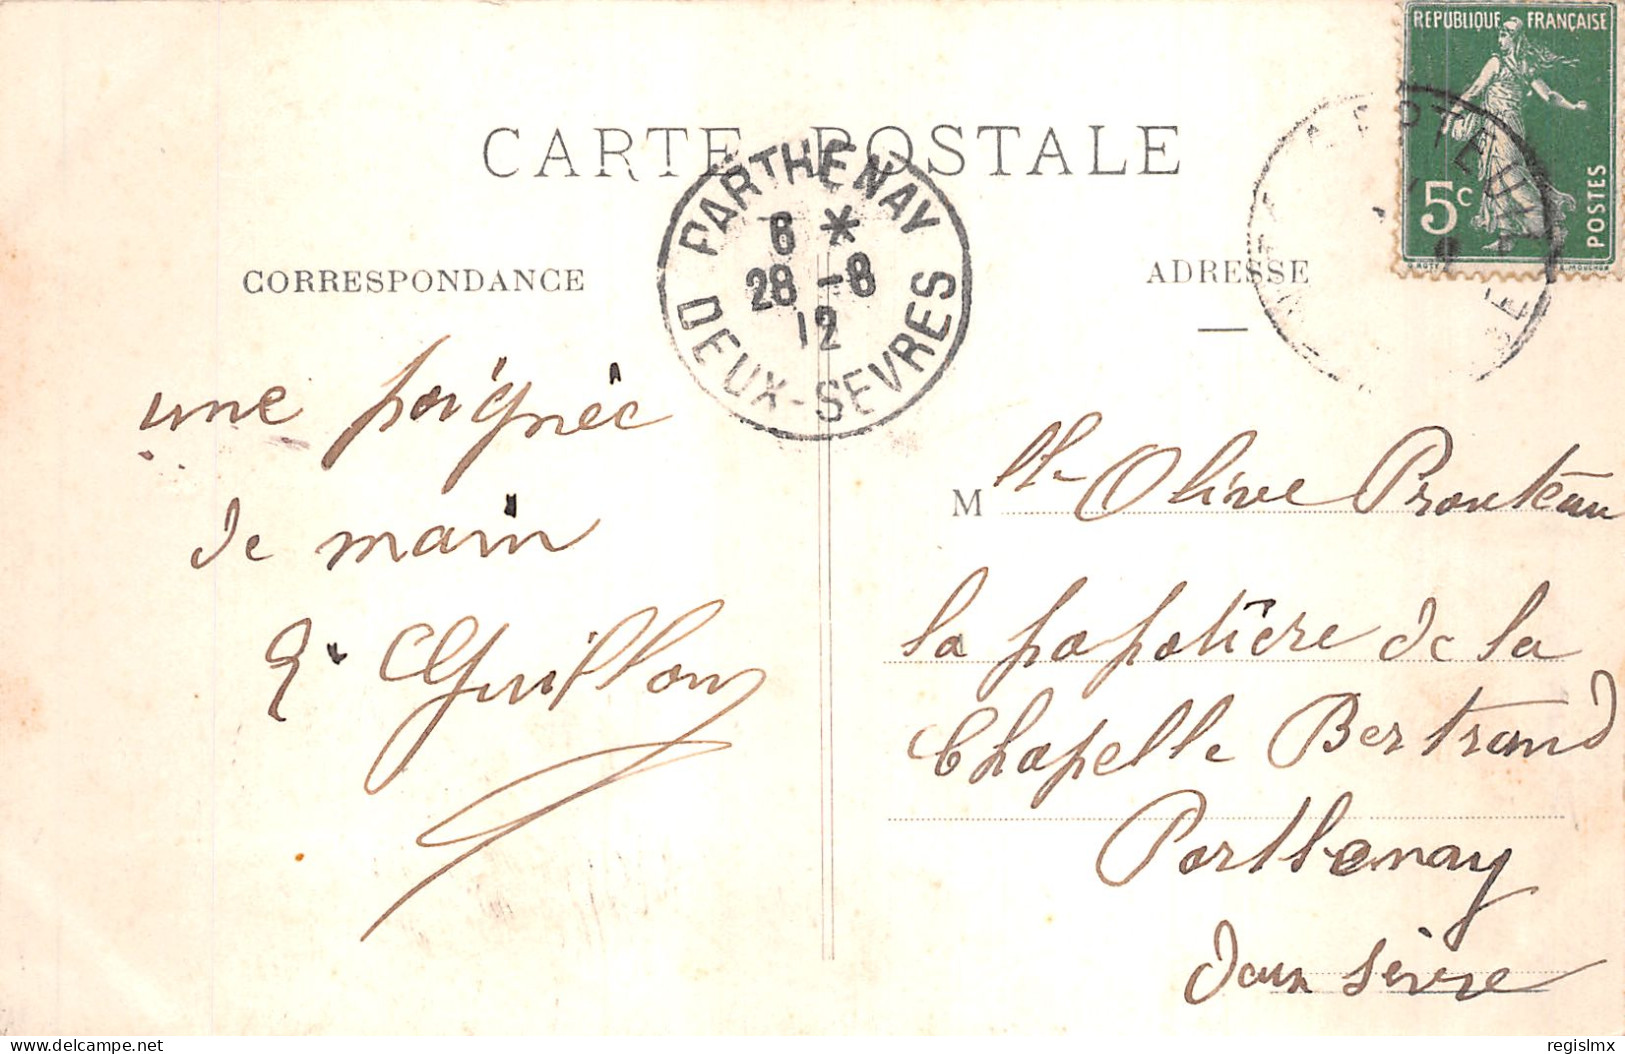 RÉPUBLIQUE FRANÇAISE
5c
POSTES
CARTE POSTALE
PARTHENAY
6 *
28 -8
12
DEUX-SEVRES
CORRESPONDANCE
ADRESSE
une poignée
de main
Guillon
M lle Olive Prouteau
la papotière de la
Chapelle Bertrand
Parthenay
Deux sèvre
Delcampe.net
regislmx